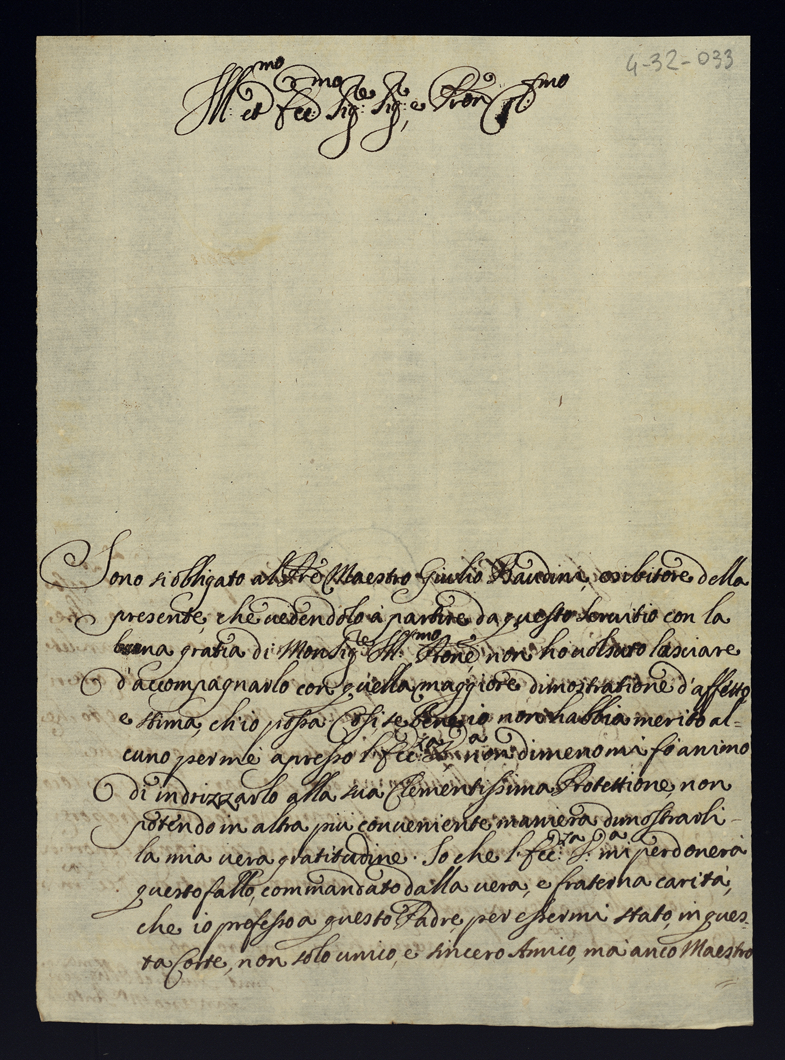 4-32-033
Ill:mo et Ecc:mo Sig:re Sig:re, e Pron Col:mo
Sono si obligato al Pre Maestro Giulio Bandini, esibitore della
presente, che uedendolo à partire da questo seruitio con la
buona gratia di Monsig:re Ill:mo Pione, non ho uolsuto lasciare
d'accompagnarlo con quella maggiore dimostratione d'affetto
e stima, ch'io possa. Cosi se bene io non habbia merito al-
cuno per me apresso l'Ecc:za S:a non dimeno mi fò animo
di indrizzarlo alla sua Clementissima Protettione, non
potendo in altra più conueniente maniera dimostrarli
la mia uera gratitudine. So che l'Ecc:za S:a mi perdonerà
questo fallo, commandato dalla uera, e fraterna carità,
che io professo a questo Padre, per essermi stato, in ques-
ta Corte, non solo unico, e sincero Amico, ma anco Maestro